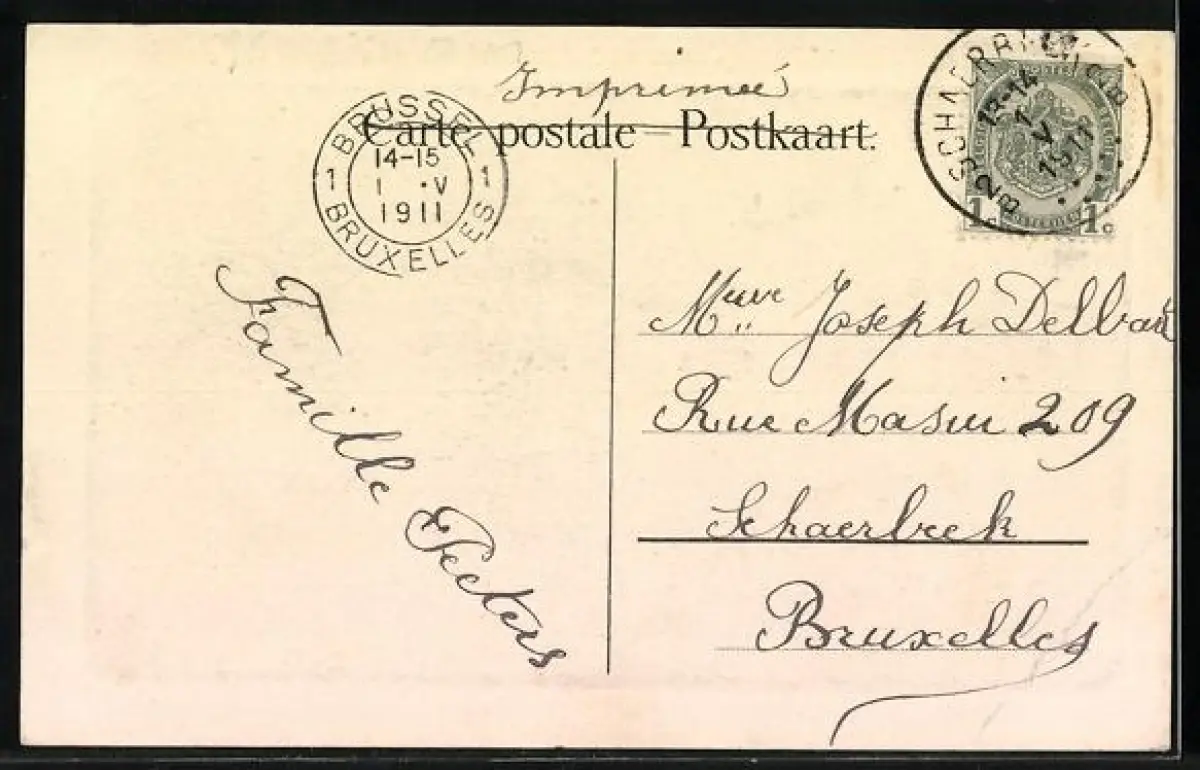 Imprimée
Carte postale – Postkaart.
1 BRUSSEL 1
14-15
1 ·V
1911
BRUXELLES
SCHAERBEEK
13-14
1
V
1911
1c 1c
Famille Peeters
Joseph
Rue Masui 209
Schaerbeek
Bruxelles